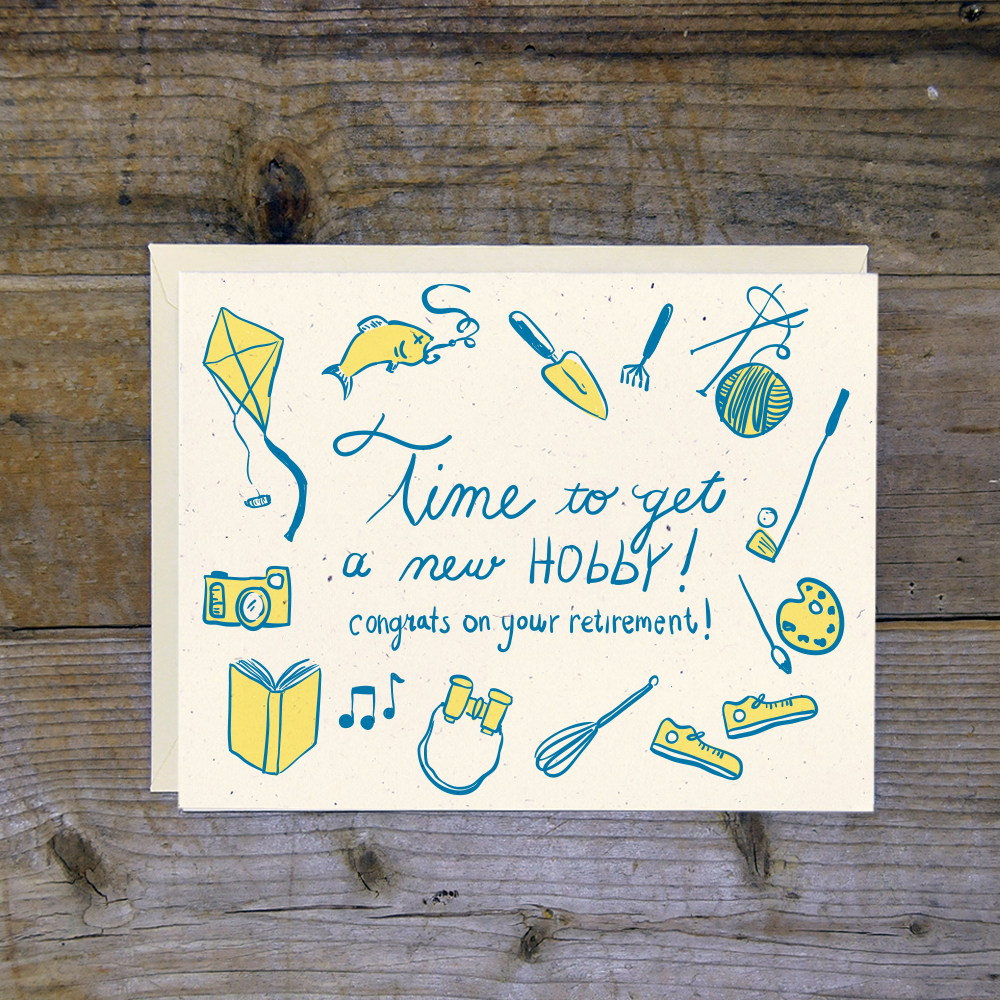 Time to get
a new HObbY!
congrats on your retirement!